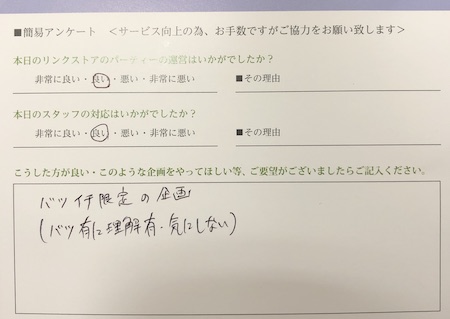 ■簡易アンケート ＜サービス向上の為、お手数ですがご協力をお願い致します＞
本日のリンクストアのパーティーの運営はいかがでしたか？
非常に良い・良い・悪い・非常に悪い ■その理由
本日のスタッフの対応はいかがでしたか？
非常に良い・良い・悪い・非常に悪い ■その理由
こうした方が良い・このような企画をやってほしい等、ご要望がございましたらご記入ください。
バツイチ限定の企画
(バツ有に理解有・気にしない)